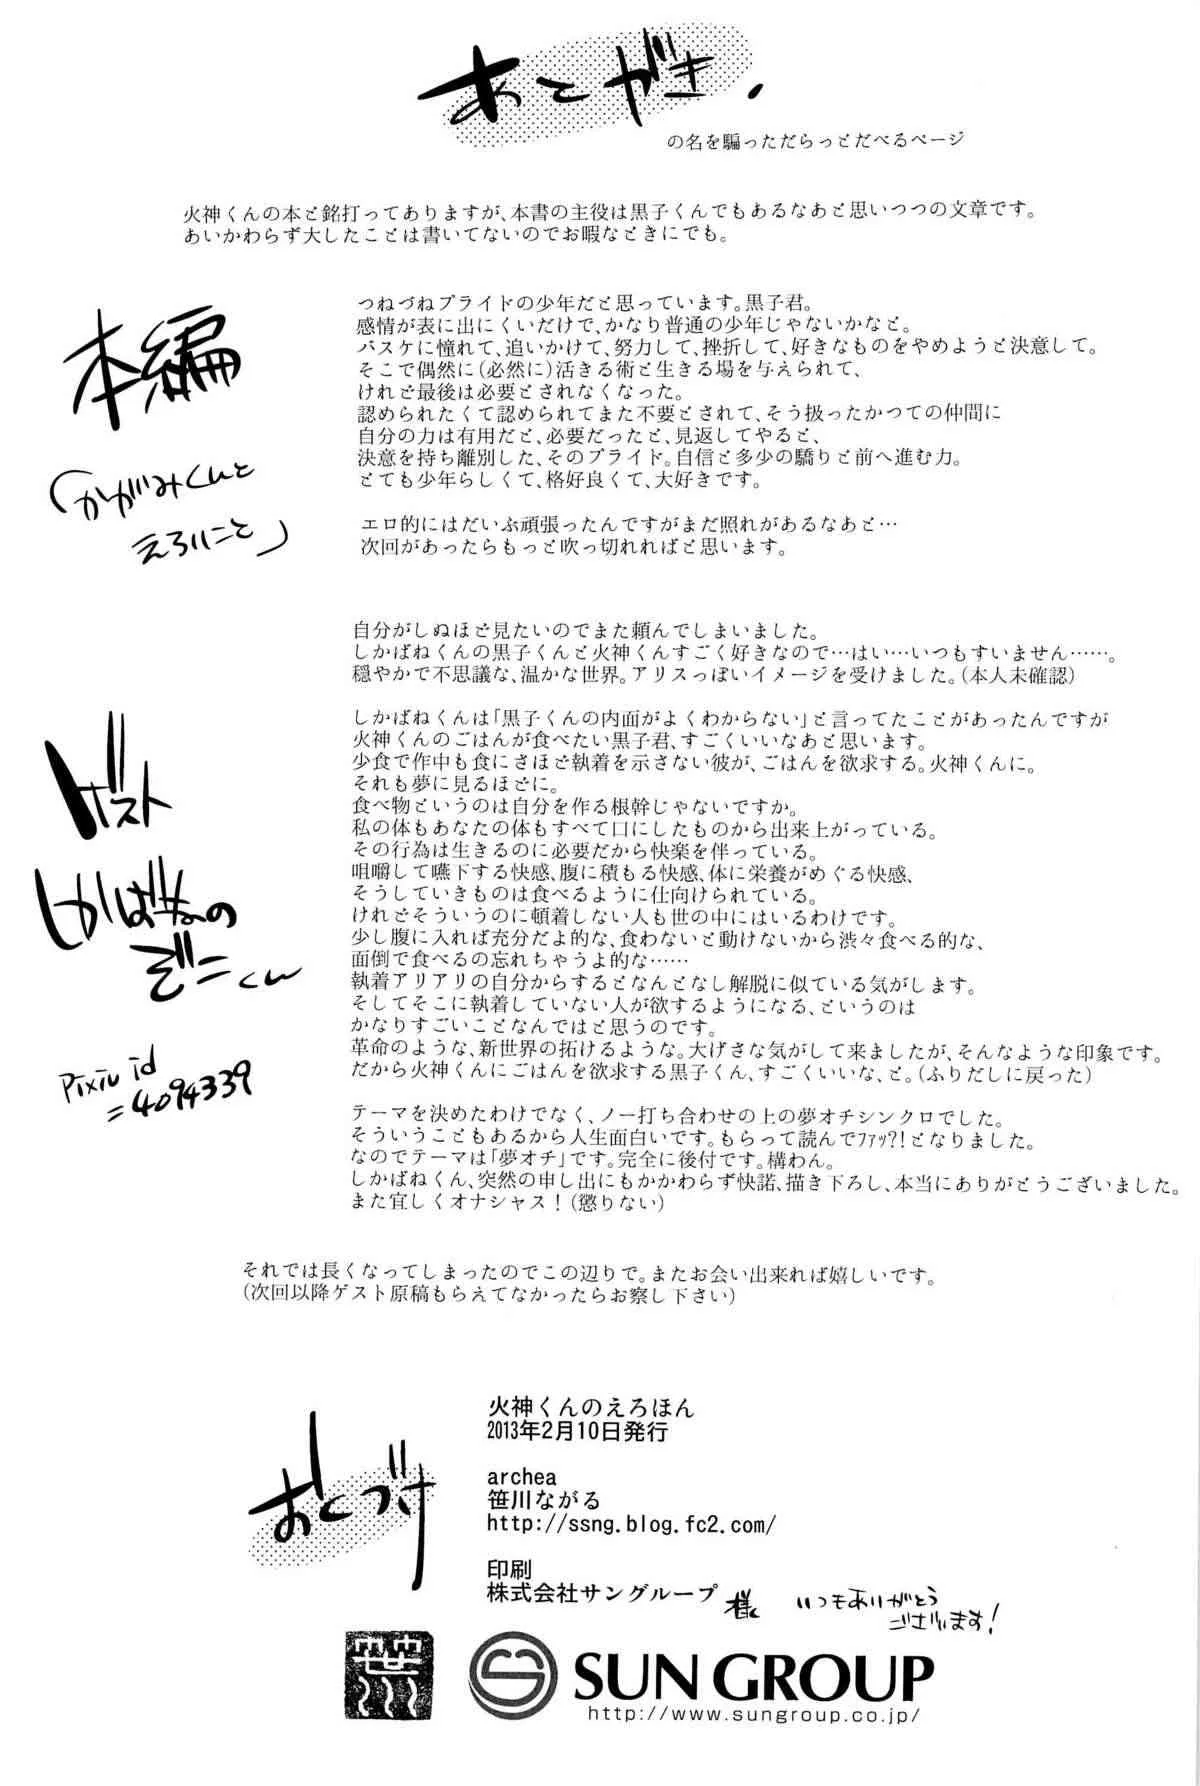 あとがき.
の名を騙っただらっとだべるページ
火神くんの本と銘打ってありますが、本書の主役は黒子くんでもあるなあと思いつつの文章です。
あいかわらず大したことは書いてないのでお暇なときにでも。
本編
「かがみくんと
えろいこと」
つねづねプライドの少年だと思っています。黒子君。
感情が表に出にくいだけで、かなり普通の少年じゃないかなと。
バスケに憧れて、追いかけて、努力して、挫折して、好きなものをやめようと決意して。
そこで偶然に(必然に)活きる術と生きる場を与えられて、
けれど最後は必要とされなくなった。
認められたくて認められてまた不要とされて、そう扱ったかつての仲間に
自分の力は有用だと、必要だったと、見返してやると、
決意を持ち離別した、そのプライド。自信と多少の驕りと前へ進む力。
とても少年らしくて、格好良くて、大好きです。
エロ的にはだいぶ頑張ったんですがまだ照れがあるなあと…
次回があったらもっと吹っ切れればと思います。
ゲスト
しかばねの
ぞにくん
pixiv id
=4094339
自分がしぬほど見たいのでまた頼んでしまいました。
しかばねくんの黒子くんと火神くんすごく好きなので…はい…いつもすいません……。
穏やかで不思議な、温かな世界。アリスっぽいイメージを受けました。(本人未確認)
しかばねくんは「黒子くんの内面がよくわからない」と言ってたことがあったんですが
火神くんのごはんが食べたい黒子君、すごくいいなあと思います。
少食で作中も食にさほど執着を示さない彼が、ごはんを欲求する。火神くんに。
それも夢に見るほどに。
食べ物というのは自分を作る根幹じゃないですか。
私の体もあなたの体もすべて口にしたものから出来上がっている。
その行為は生きるのに必要だから快楽を伴っている。
咀嚼して嚥下する快感、腹に積もる快感、体に栄養がめぐる快感、
そうしていきものは食べるように仕向けられている。
けれどそういうのに頓着しない人も世の中にはいるわけです。
少し腹に入れば充分だよ的な、食わないと動けないから渋々食べる的な、
面倒で食べるの忘れちゃうよ的な……
執着アリアリの自分からするとなんとなし解脱に似ている気がします。
そしてそこに執着していない人が欲するようになる、というのは
かなりすごいことなんではと思うのです。
革命のような、新世界の拓けるような。大げさな気がして来ましたが、そんなような印象です。
だから火神くんにごはんを欲求する黒子くん、すごくいいな、と。(ふりだしに戻った)
テーマを決めたわけでなく、ノー打ち合わせの上の夢オチシンクロでした。
そういうこともあるから人生面白いです。もらって読んでﾌｧｯ?!となりました。
なのでテーマは「夢オチ」です。完全に後付です。構わん。
しかばねくん、突然の申し出にもかかわらず快諾、描き下ろし、本当にありがとうございました。
また宜しくオナシャス！(懲りない)
それでは長くなってしまったのでこの辺りで。またお会い出来れば嬉しいです。
(次回以降ゲスト原稿もらえてなかったらお察し下さい)
おくづけ
火神くんのえろほん
2013年2月10日発行
archea
笹川ながる
http://ssng.blog.fc2.com/
印刷
株式会社サングループ 様 いつもありがとう
ございます!
笹川
SUN GROUP
http://www.sungroup.co.jp/